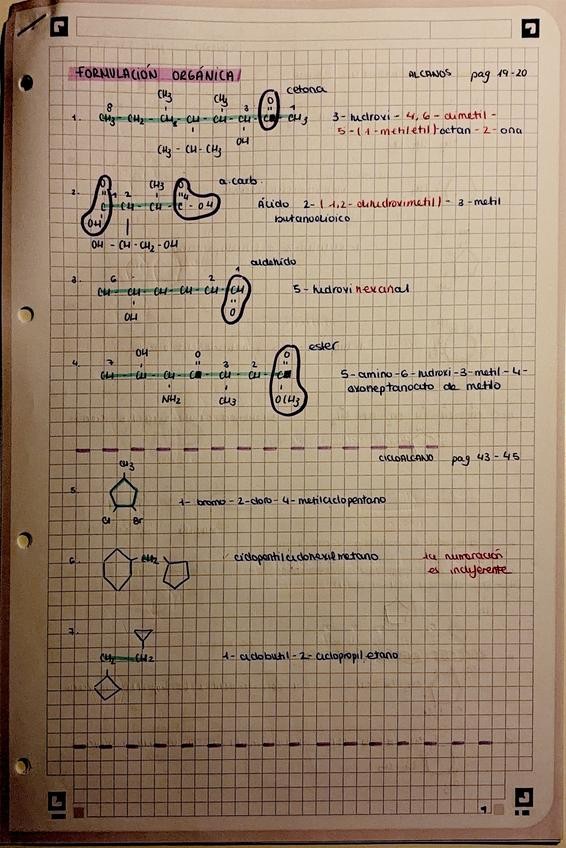 FORMULACIÓN ORGÁNICA
ALCANOS pag 19-20
cetona
CH3 CH3 O
8 3 1
1. CH3 - CH2 - CH - CH - CH - CH - C - CH3
OH
CH3 - CH - CH3
3-hidroxi-4,6-dimetil-
5-(1-metiletil)octan-2-ona
a. carb.
O CH3 O
2. C - CH - CH - C - OH
1 2 4
OH
OH - CH - CH2 - OH
Ácido 2-(1,2-dihidroximetil)-3-metil
butanodioico
aldehído
6 2 1
3. CH - CH - CH - CH - CH - CH
OH O
5-hidroxihexanal
ester
OH O O
7 3 2
4. CH - CH - CH - C - CH - CH - C
NH2 CH3 OCH3
5-amino-6-hidroxi-3-metil-4-
oxoheptanoato de metilo
CICLOALCANO pag 43-45
CH3
5.
Cl Br
1-bromo-2-cloro-4-metilciclopentano
6. CH2
ciclopentilciclohexilmetano
la numeración
es indiferente
7.
CH2 - CH2
1-ciclobutil-2-ciclopropiletano
1